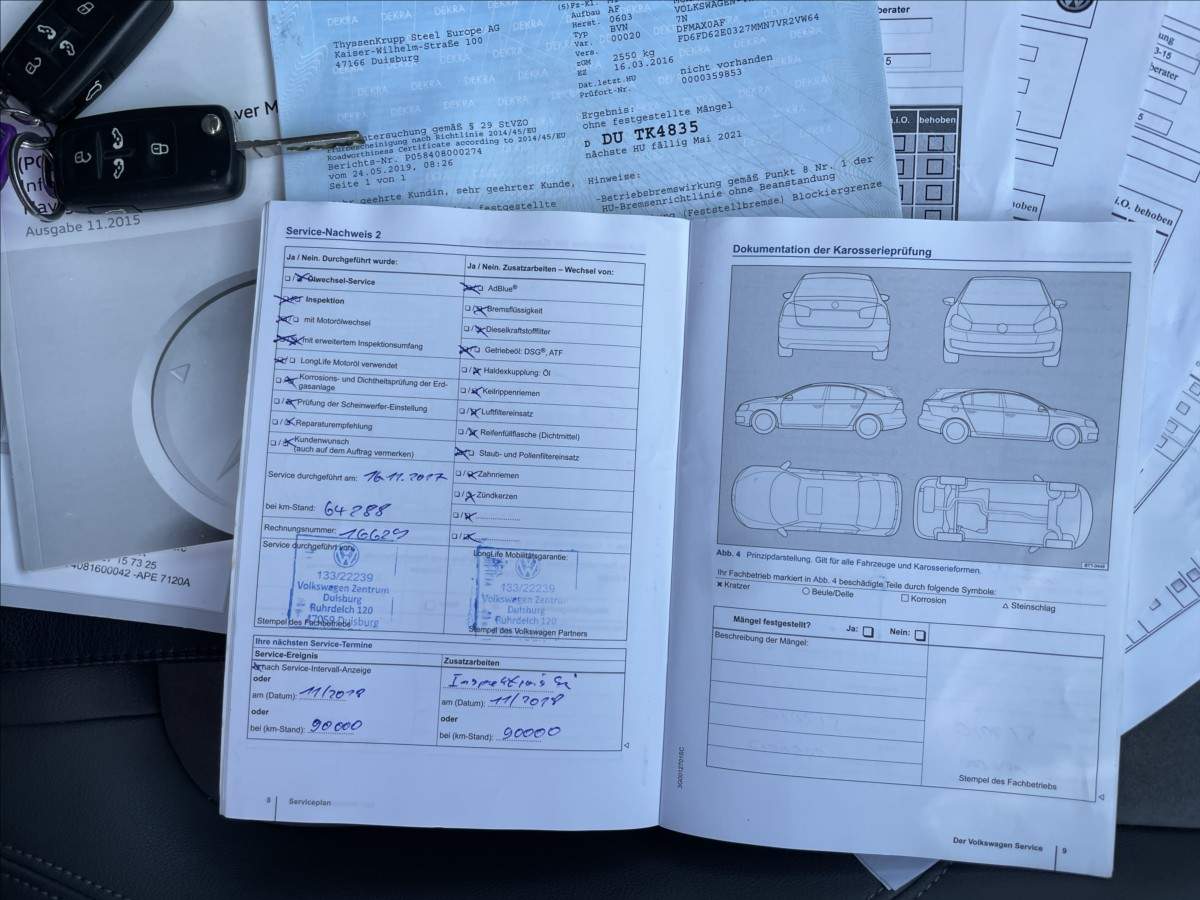 DEKRA
ThyssenKrupp Steel Europe AG
Kaiser-Wilhelm-Straße 100
47166 Duisburg
Aufbau AF
Herst. 0603
Typ 7N
BVN
Var. 00020 DFMAX0AF
Vers. FD6FD62E0327MMN7VR2VW64
zGM 2550 kg
EZ 16.03.2016
Dat.letzt.HU nicht vorhanden
Prüfort-Nr. 0000359853
gemäß § 29 StVZO
nach Richtlinie 2014/45/EU
Roadworthiness Certificate according to 2014/45/EU
Berichts-Nr. P058408000274
vom 24.05.2019, 08:26
Seite 1 von 1
geehrte Kundin, sehr geehrter Kunde,
festgestellte
Ergebnis:
ohne festgestellte Mängel
D DU TK4835
nächste HU fällig Mai 2021
Hinweise:
-Betriebsbremswirkung gemäß Punkt 8 Nr. 1 der
HU-Bremsenrichtlinie ohne Beanstandung
(Feststellbremse) Blockiergrenze
berater
i.O. behoben
i.O. behoben
Ausgabe 11.2015
15 73 25
4081600042 -APE 7120A
Service-Nachweis 2
Ja / Nein. Durchgeführt wurde:
Ölwechsel-Service
Inspektion
mit Motorölwechsel
mit erweitertem Inspektionsumfang
LongLife Motoröl verwendet
Korrosions- und Dichtheitsprüfung der Erd-
gasanlage
Prüfung der Scheinwerfer-Einstellung
Reparaturempfehlung
Kundenwunsch
(auch auf dem Auftrag vermerken)
Service durchgeführt am: 16.11.2017
bei km-Stand: 64288
Rechnungsnummer: 16629
Service durchgeführt von:
133/22239
Volkswagen Zentrum
Duisburg
Ruhrdeich 120
47059 Duisburg
Stempel des Fachbetriebs
Ja / Nein. Zusatzarbeiten – Wechsel von:
AdBlue®
Bremsflüssigkeit
Dieselkraftstofffilter
Getriebeöl: DSG®, ATF
Haldexkupplung: Öl
Keilrippenriemen
Luftfiltereinsatz
Reifenfüllflasche (Dichtmittel)
Staub- und Pollenfiltereinsatz
Zahnriemen
Zündkerzen
LongLife Mobilitätsgarantie:
133/22239
Volkswagen Zentrum
Duisburg
Ruhrdeich 120
Stempel des Volkswagen Partners
Ihre nächsten Service-Termine
Service-Ereignis
nach Service-Intervall-Anzeige
oder
am (Datum): 11/2018
oder
bei (km-Stand): 90000
Zusatzarbeiten
am (Datum): 11/2018
oder
bei (km-Stand): 90000
8 Serviceplan
Dokumentation der Karosserieprüfung
Abb. 4 Prinzipdarstellung. Gilt für alle Fahrzeuge und Karosserieformen.
Ihr Fachbetrieb markiert in Abb. 4 beschädigte Teile durch folgende Symbole:
Kratzer
Beule/Delle
Korrosion
Steinschlag
Mängel festgestellt? Ja: Nein:
Beschreibung der Mängel:
Stempel des Fachbetriebs
Der Volkswagen Service 9